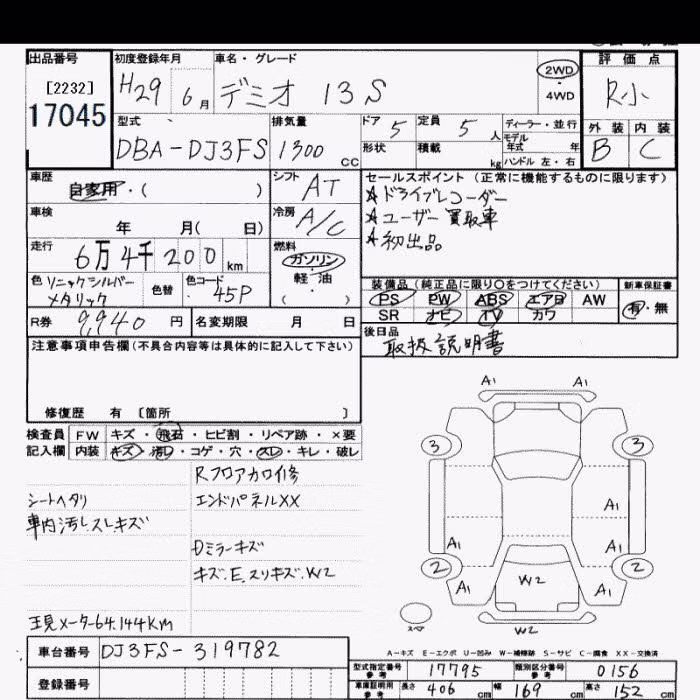 出品番号 初度登録年月 車名・グレード 評価点
[2232] H29 6月 デミオ 13S 2WD R小
17045 ・4WD
型式 排気量 ドア 5 定員 5人 ディーラー・並行 外装 内装
DBA-DJ3FS 1300 cc 形状 積載 kg モデル年式 年 B C
ハンドル 左・右
車歴 シフト AT セールスポイント(正常に機能するものに限ります)
自家用・( ) ☆ドライブレコーダー
車検 冷房 A/C ☆ユーザー買取車
年 月( 日) ☆初出品
走行 燃料
6万4千200km ガソリン
色 ソニックシルバーメタリック 色替 色コード 45P 軽・油 装備品(純正品に限り○をつけてください) 新車保証書
( ・ ) PS PW ABS エアB AW 有・無
R券 9,940円 名変期限 月 日 SR ナビ TV カワ
注意事項申告欄(不具合内容等は具体的に記入して下さい) 後日品
取扱説明書
修復歴 有 〔箇所 〕
A1 A1
検査員 FW キズ・飛石・ヒビ割・リペア跡・×要
記入欄 内装 キズ・汚レ・コゲ・穴・スレ・キレ・破レ
3 3
Rフロアカワイ修
シートヘタリ エンドパネルXX
A1
車内汚レスレキズ
Dミラーキズ
A1 A1
キズ.E.スリキズ.W2
2 2
A1 W2 A1
現メーター64,144Km
スペア W2
A-キズ E-エクボ U-凹み W-補修跡 S-サビ C-腐食 XX-交換済
車台番号 DJ3FS-319782
型式指定番号 参考 17795 類別区分番号 参考 0156
登録番号
車庫証明用 参考 長さ 406cm 幅 169cm 高さ 152cm